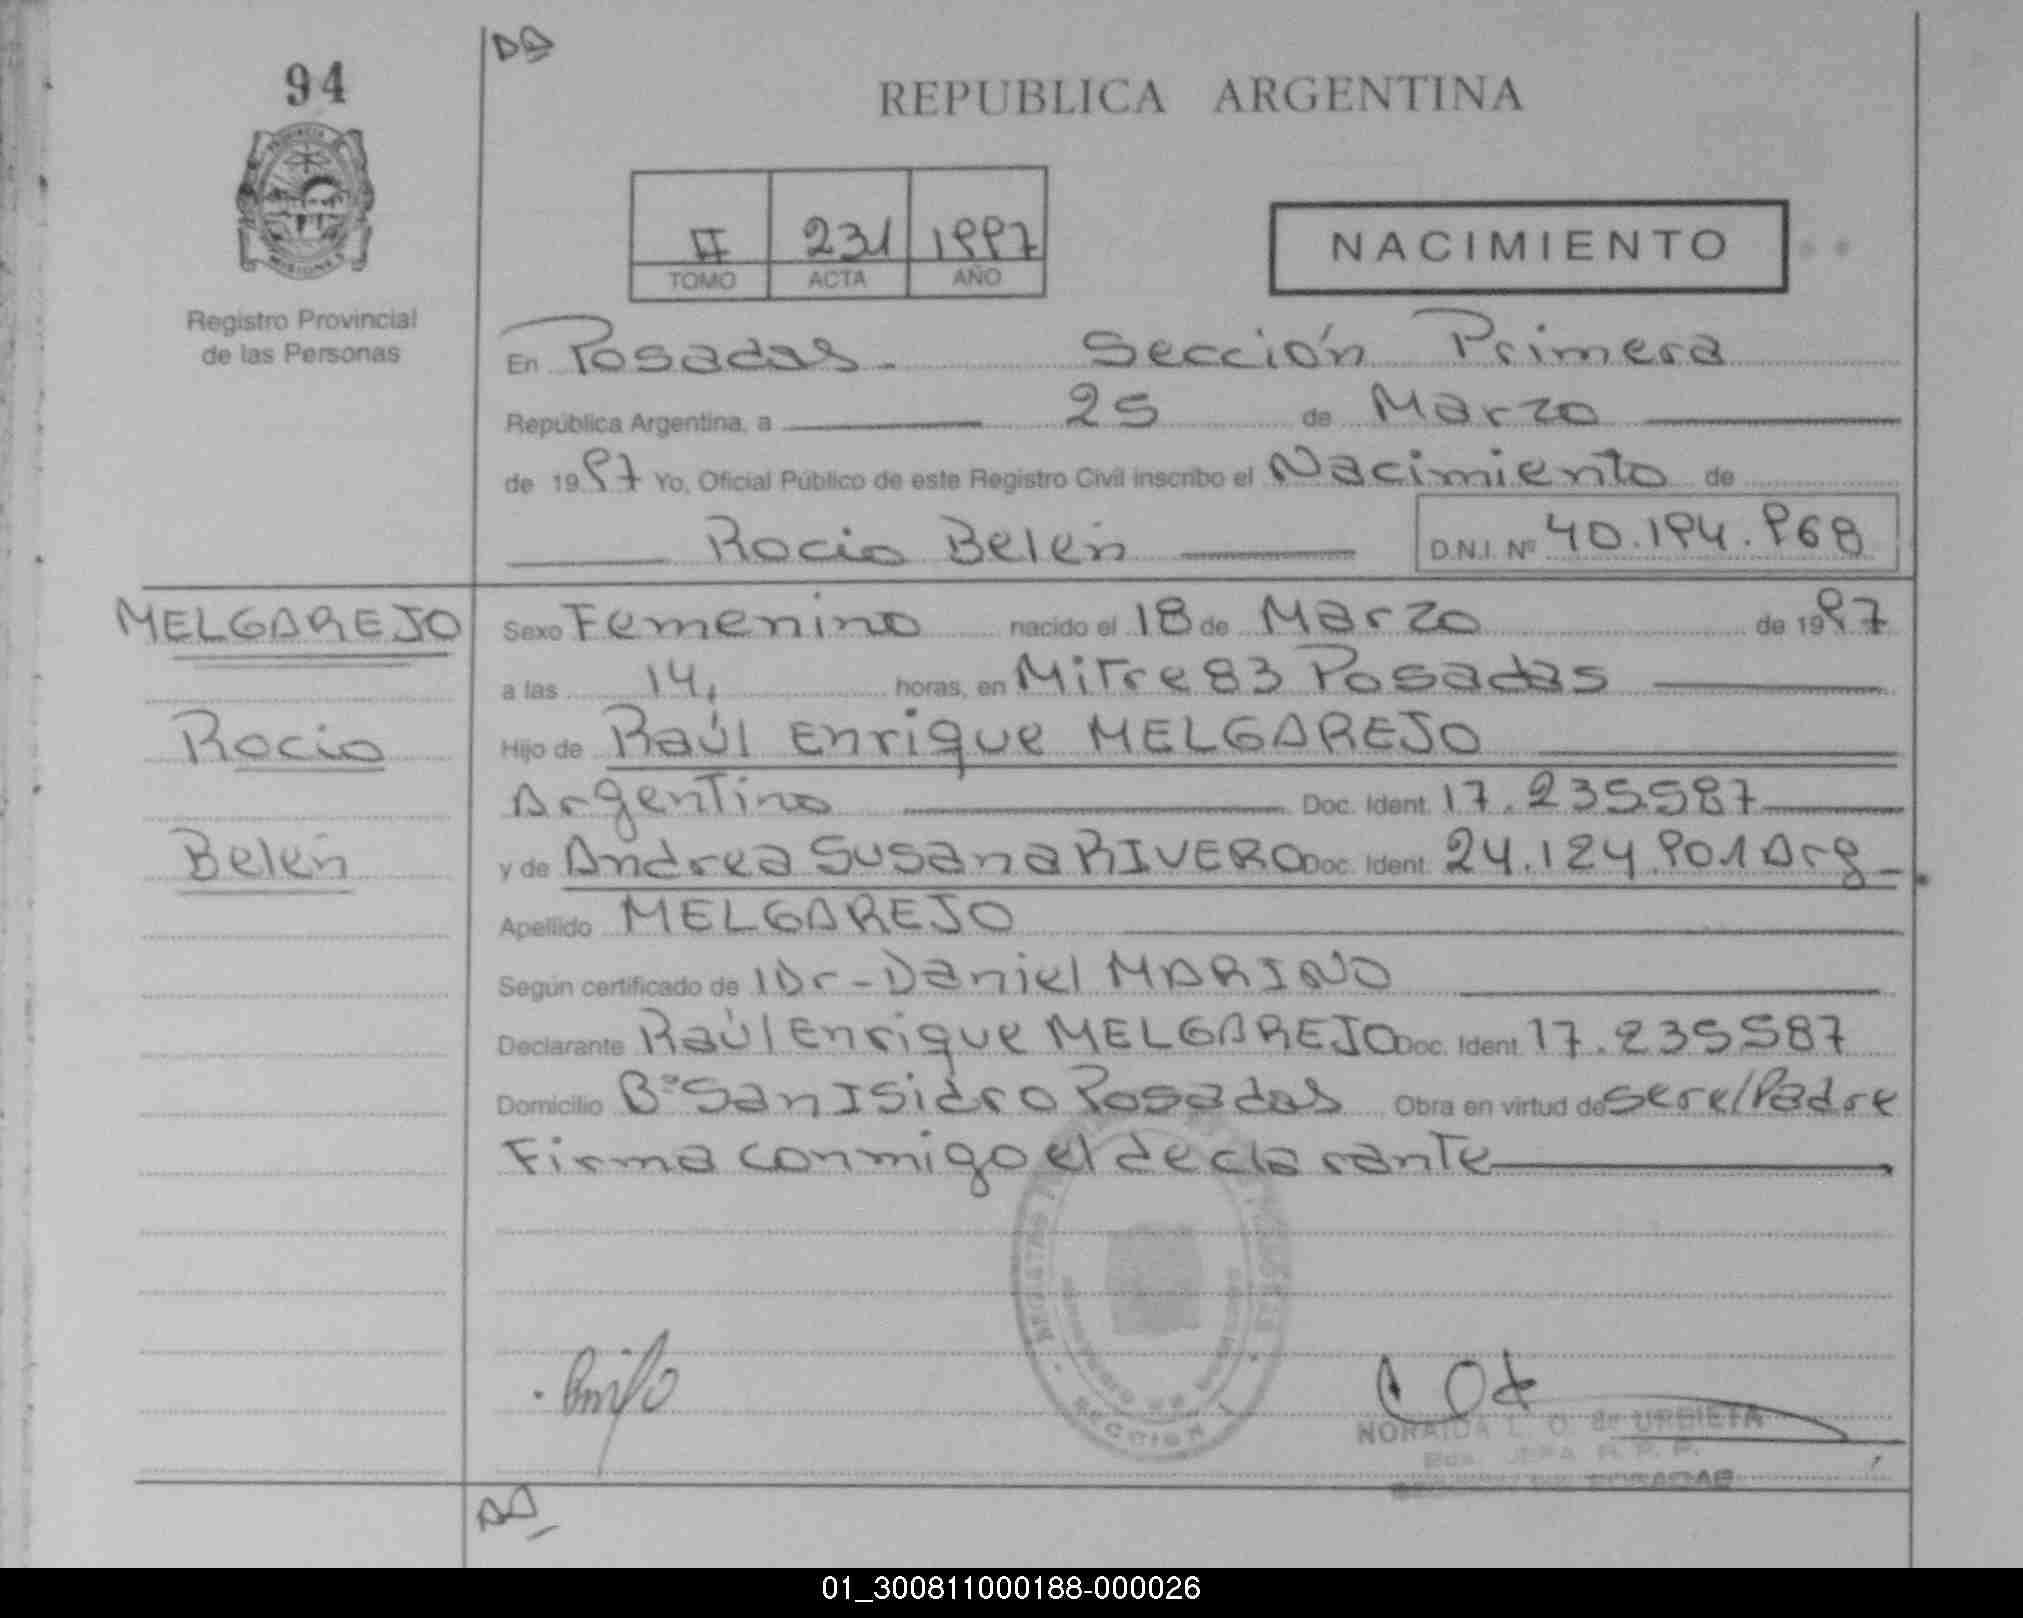 94
REPUBLICA ARGENTINA
II 231 1997
TOMO ACTA AÑO
NACIMIENTO
Registro Provincial
de las Personas
En Posadas. Sección Primera
República Argentina, a 25 de Marzo
de 1997 Yo, Oficial Público de este Registro Civil inscribo el Nacimiento de
Rocio Belén D.N.I. Nº 40.194.968
MELGAREJO
Rocio
Belén
Sexo Femenino nacido el 18 de Marzo de 1997
a las 14, horas, en Mitre 83 Posadas
Hijo de Raúl Enrique MELGAREJO
Argentino Doc. Ident. 17.235587
y de Andrea Susana RIVERO Doc. Ident. 24.124.901 Arg
Apellido MELGAREJO
Según certificado de Dr - Daniel MARINO
Declarante Raúl Enrique MELGAREJO Doc. Ident. 17.235587
Domicilio Bº San Isidro Posadas Obra en virtud de ser el Padre
Firma conmigo el declarante
SECCION 1
NORAIDA L. O. de URBIETA
JEFA R. P. P.
POSADAS
01_300811000188-000026